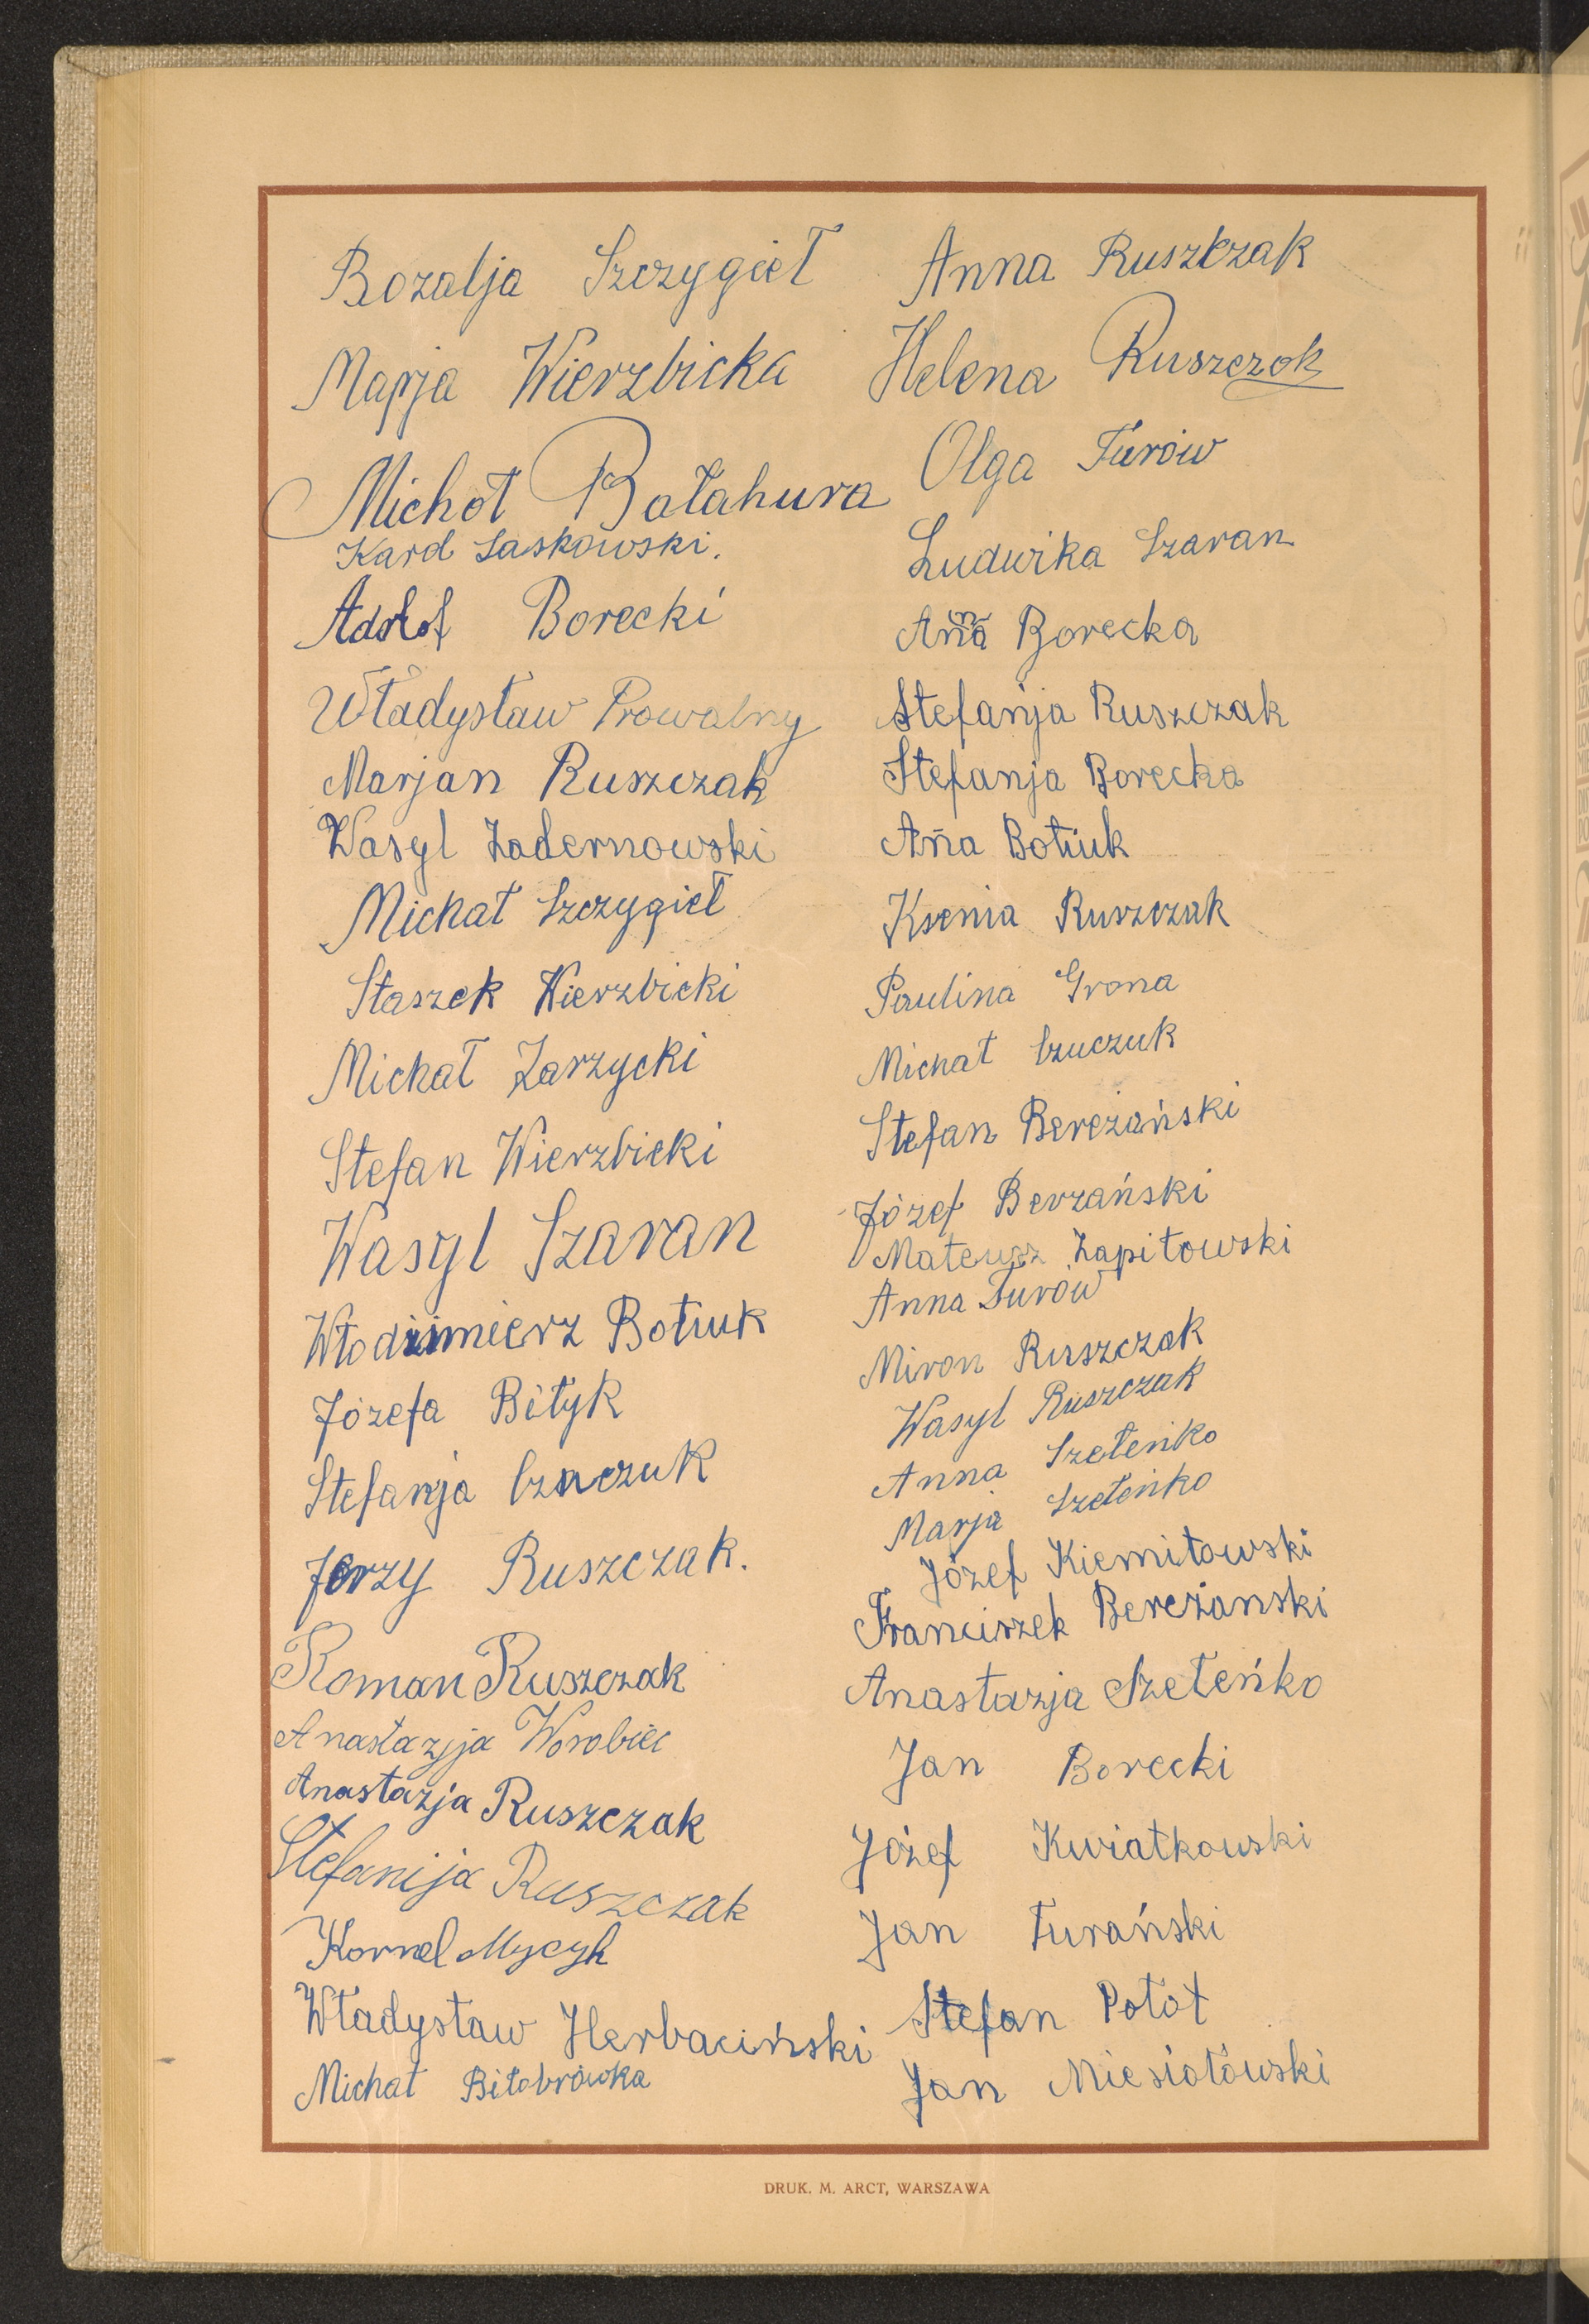 Rozalja Szczygieł
Marja Wierzbicka
Michoł Bałahura
Karol Laskowski.
Adolof Borecki
Władysław Prowalny
Marjan Ruszczak
Wasyl Zadernowski
Michał Szczygieł
Staszek Wierzbicki
Michał Zarzycki
Stefan Wierzbicki
Wasyl Szaran
Włodzimierz Botiuk
Józefa Biłyk
Stefanja Czuczuk
Jerzy Ruszczak.
Roman Ruszczak
Anastazja Worobiec
Anastazja Ruszczak
Stefanija Ruszczak
Kornel Mycyk
Władysław Herbaciński
Michał Biłobrówka
Anna Ruszczak
Helena Ruszczok
Olga Turów
Ludwika Szaran
Anna Borecka
Stefanja Ruszczak
Stefanja Borecka
Ana Botiuk
Ksenia Ruszczak
Paulina Grona
Michał Czuczuk
Stefan Bereżański
Józef Berzański
Mateusz Zapitowski
Anna Turów
Miron Ruszczak
Wasyl Ruszczak
Anna Szeteńko
Marja Szeteńko
Józef Kiemitowski
Franciszek Bereżanski
Anastazja Szeteńko
Jan Borecki
Józef Kwiatkowski
Jan Turański
Stefan Potot
Jan Miesiołówski
DRUK. M. ARCT, WARSZAWA